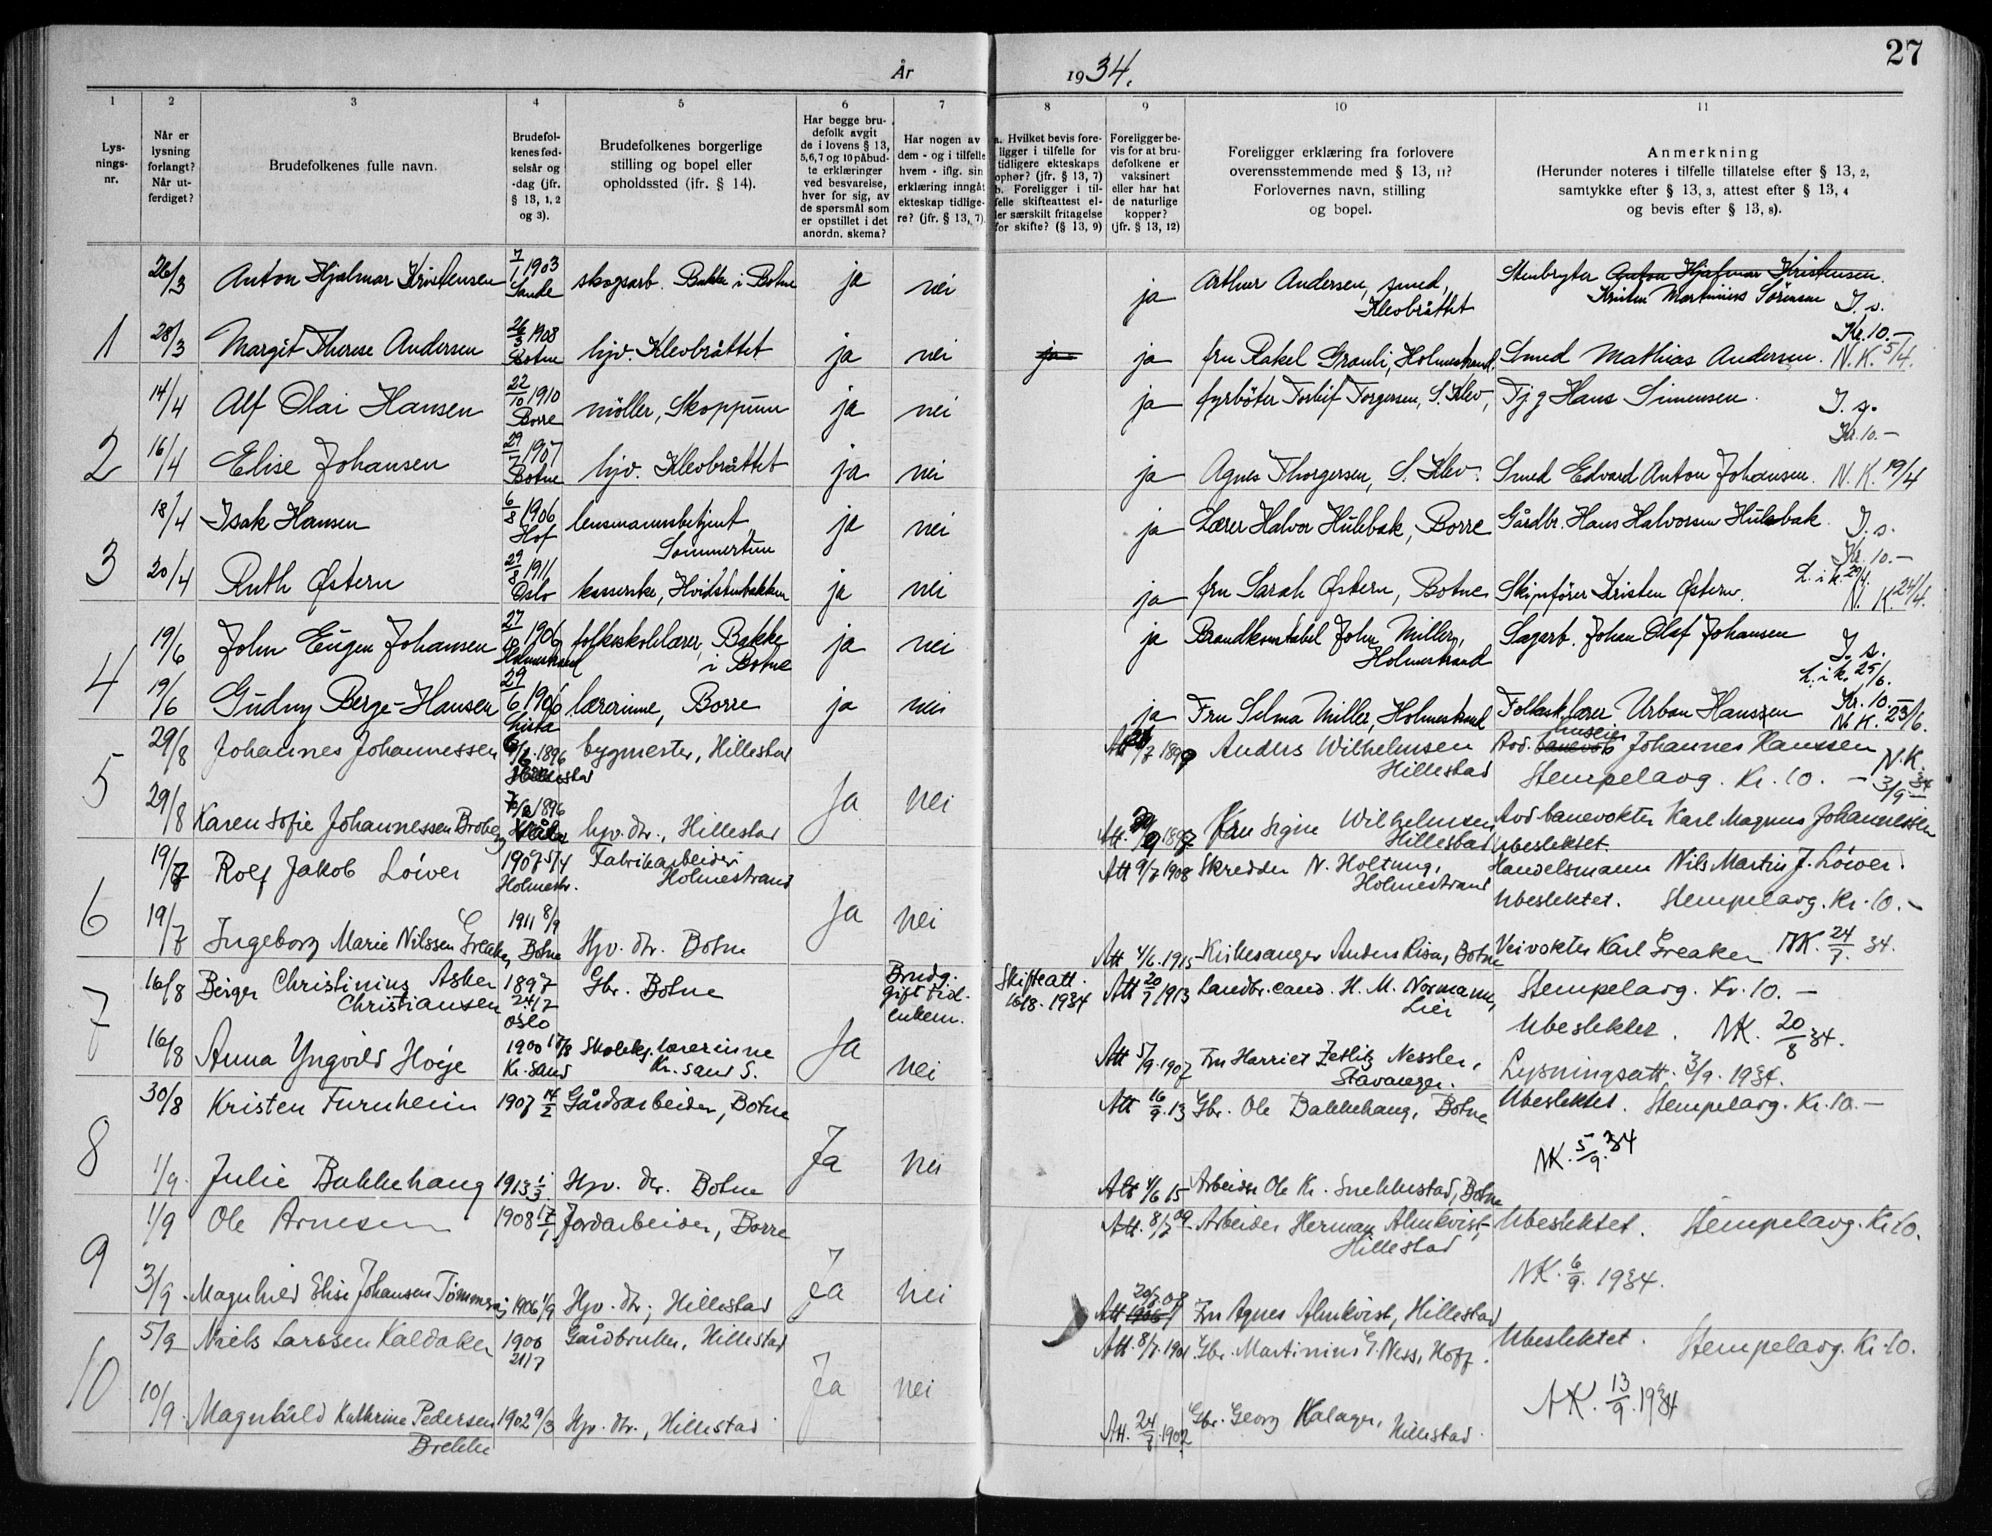 27
År 1934.
1 2 3 4 5 6 7 8 9 10 11
Lys-
nings-
nr.
Når er
lysning
forlangt?
Når ut-
ferdiget?
Brudefolkenes fulle navn.
Brudefol-
kenes fød-
selsår og
-dag (jfr.
§ 13, 1, 2
og 3).
Brudefolkenes borgerlige
stilling og bopel eller
opholdssted (ifr. § 14).
Har begge bru-
defolk avgit
de i lovens § 13,
5,6,7 og 10 påbud-
te erklæringer
ved besvarelse,
hver for sig, av
de spørsmål som
er opstillet i det
anordn. skema?
Har nogen av
dem - og i tilfelle
hvem - iflg. sin
erklæring inngåt
ekteskap tidlige-
re? (jfr. § 13, 7).
a. Hvilket bevis fore-
ligger i tilfelle for
tidligere ekteskaps
ophør? (jfr. § 13, 7)
b. Foreligger i til-
felle skifteattest el-
ler særskilt fritagelse
for skifte? (§ 13, 9)
Foreligger be-
vis for at bru-
defolkene er
vaksinert
eller har hat
de naturlige
kopper?
(jfr. § 13, 12)
Foreligger erklæring fra forlovere
overensstemmende med § 13, 11?
Forlovernes navn, stilling
og bopel.
Anmerkning
(Herunder noteres i tilfelle tillatelse efter § 13, 2,
samtykke efter § 13, 3, attest efter § 13, 4
og bevis efter § 13, 8).
26/3 Anton Hjalmar Kristensen 7/1 1903 Sande skogsarb. Bakke i Botne ja nei ja Arthur Andersen, smed, Klevbråttet Stenbryter Anton Hjalmar Kristensen. Kristen Martinius Sørensen I. s.
1 28/3 Margit Therese Andersen 26/3 1908 Botne hjv. Klevbråttet ja nei ja ja fru Rakel Granli, Holmestrand. Smed Mathias Andersen. Kr. 10.- N. K. 5/4.
14/4 Alf Olai Hansen 22/10 1910 Borre møller, Skoppum ja nei ja fyrbøter Torleif Torgersen, S. Klev, Tjg Hans Simensen. I. s. Kr. 10.-
2 16/4 Elise Johansen 29/7 1907 Botne hjv. Klevbråttet ja nei ja Agnes Thorgersen, S. Klev. Smed Edvard Anton Johansen. N. K. 19/4
18/4 Isak Hansen 6/8 1906 Hof lensmannsbetjent Sommertun ja nei ja Lærer Halvor Hulebak, Borre Gårdbr. Hans Halvorsen Hulebak. I. s. Kr. 10.-
3 20/4 Ruth Østern 29/8 1911 Oslo kasserske, Hvidstenbakken ja nei ja fru Sarah Østern, Botne Skipsfører Kristen Østern. L. i k. 29/4. N. K. 24/4.
19/6 John Eugen Johansen 27/12 1906 Holmestrand folkeskolelærer, Bakke i Botne ja nei ja Brandkonstabel John Miller, Holmestrand Sagarb. Johan Olaf Johansen I. s. L. i k. 25/6.
4 19/6 Gudny Berge-Hansen 29/6 1906 Lista lærerinne, Borre ja nei ja Fru Selma Miller, Holmestrand Folkesk.lærer Urban Hanssen Kr. 10.- N. K. 23/6.
29/8 Johannes Johannessen 1896 Hillestad bygmester, Hillestad Att 1899 Anders Wilhelmsen Hillestad Avd. banevokt huseier Johannes Hanssen Stempelavg. Kr. 10. - N.K. 3/9 34
5 29/8 Karen Sofie Johannessen Broberg 1896 Våle hjv. dtr., Hillestad Ja nei Att. 1897 Fru Signe Wilhelmsen Hillestad Avd banevokter Karl Magnus Johannessen Ubeslektet.
19/7 Rolf Jakob Løwer 1907 5/4 Holmestr. Fabrikarbeider Holmestrand Att 9/7 1908 Skredder N. Holtung, Holmestrand Handelsmann Nils Martin J. Løwer. Ubeslektet. Stempelavg. Kr. 10.-
6 19/7 Ingeborg Marie Nilssen Greaker 1911 8/9 Botne Hjv. dtr. Botne Ja nei Att 4/6 1915 Kirkesanger Anders Risa, Botne Veivokter Karl Greaker NK. 24/7 34.
16/8 Beiger Christinius Asker Christiansen 1897 24/7 Oslo Gbr. Botne Brudg. gift tid. enkem. Skifteatt. 16/8. 1934 Att 20/7 1913 Landbr.cand. H. M. Normann, Lier Stempelavg. Kr. 10. -
7 Ubeslektet. NK. 20/8 34.
16/8 Anna Yngvild Høije 1900 17/8 Kr.sand Skolekj.lærerinne Kr. sand S. Ja nei Att 5/9 1907 Fru Harriet Zetlitz Nessler, Stavanger. Lysningsatt. 3/9. 1934.
30/8 Kristen Furuheim 1907 14/2 Gårdsarbeider, Botne Att 16/9 13 Gbr. Ole Bakkehaug, Botne Ubeslektet. Stempelavg. Kr. 10.-
8 NK. 5/9. 34
1/9. Julie Bakkehaug 1913 1/3 Hjv. dtr. Botne Ja nei Att 4/6 15 Arbeider Ole Kr. Snekkestad, Botne
1/9 Ole Arnesen 1908 17/1 Jordarbeider, Borre Att. 8/7 09. Arbeider Herman Almkvist, Hillestad Ubeslektet. Stempelavg. Kr 10.
9 NK. 6/9. 1934.
3/9. Magnhild Elise Johansen Tømmerås 1906 1/9 Hjv. dtr., Hillestad Ja nei Att 20/7 07 Fru Agnes Almkvist, Hillestad
5/9 Niels Larssen Kaldaker 1900 21/7 Gårdbruker, Hillestad Att. 8/7. 1901 Gbr. Martinius E. Ness, Hoff. Ubeslektet. Stempelavg. Kr 10.
10 NK. 13/9. 1934
10/9. Magnhild Kathrine Pedersen Brekke 1902 9/3 Hjv. dtr., Hillestad Ja nei Att. 24/7 1902 Gbr. Georg Halager, Hillestad.